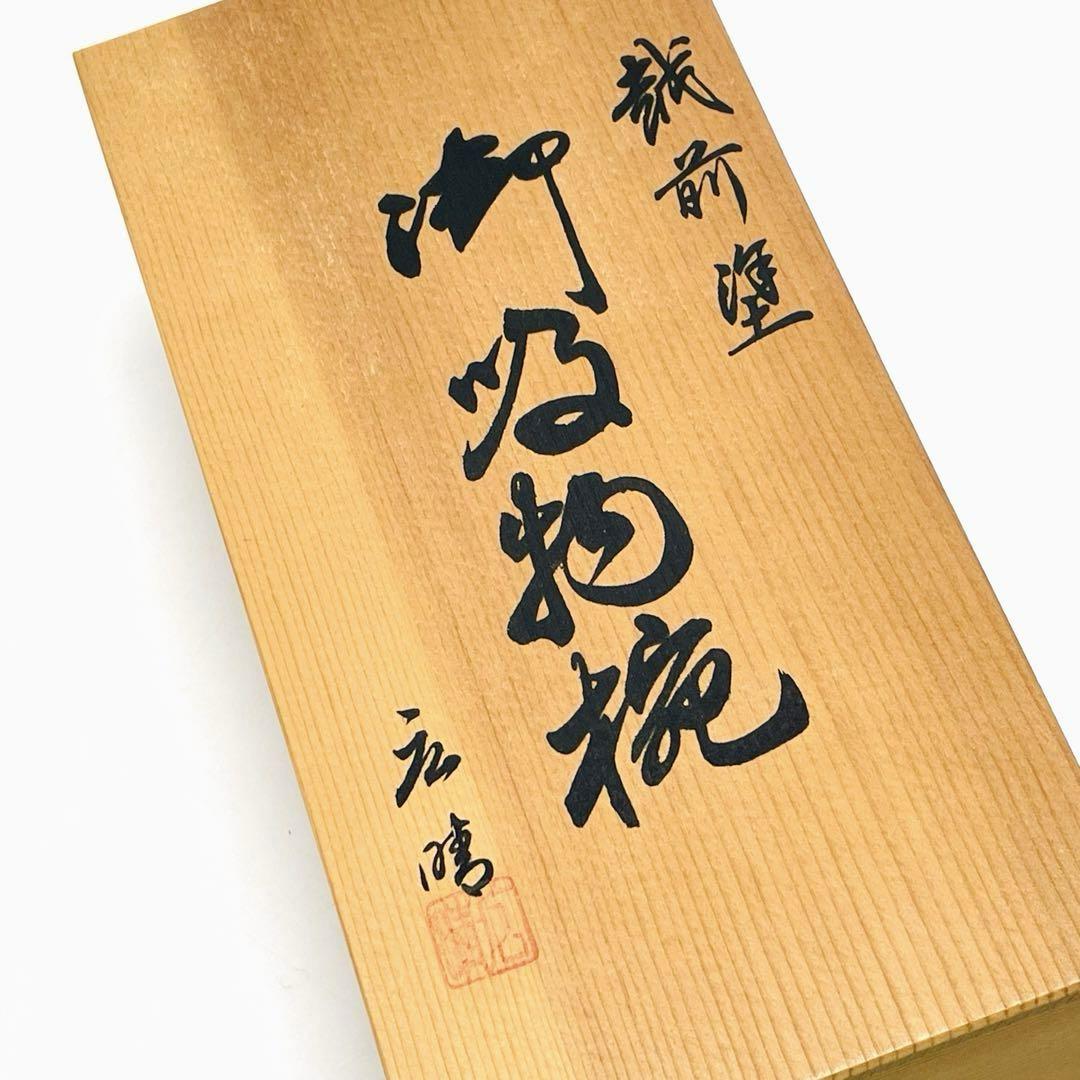 越前塗
御吸物椀
広晴